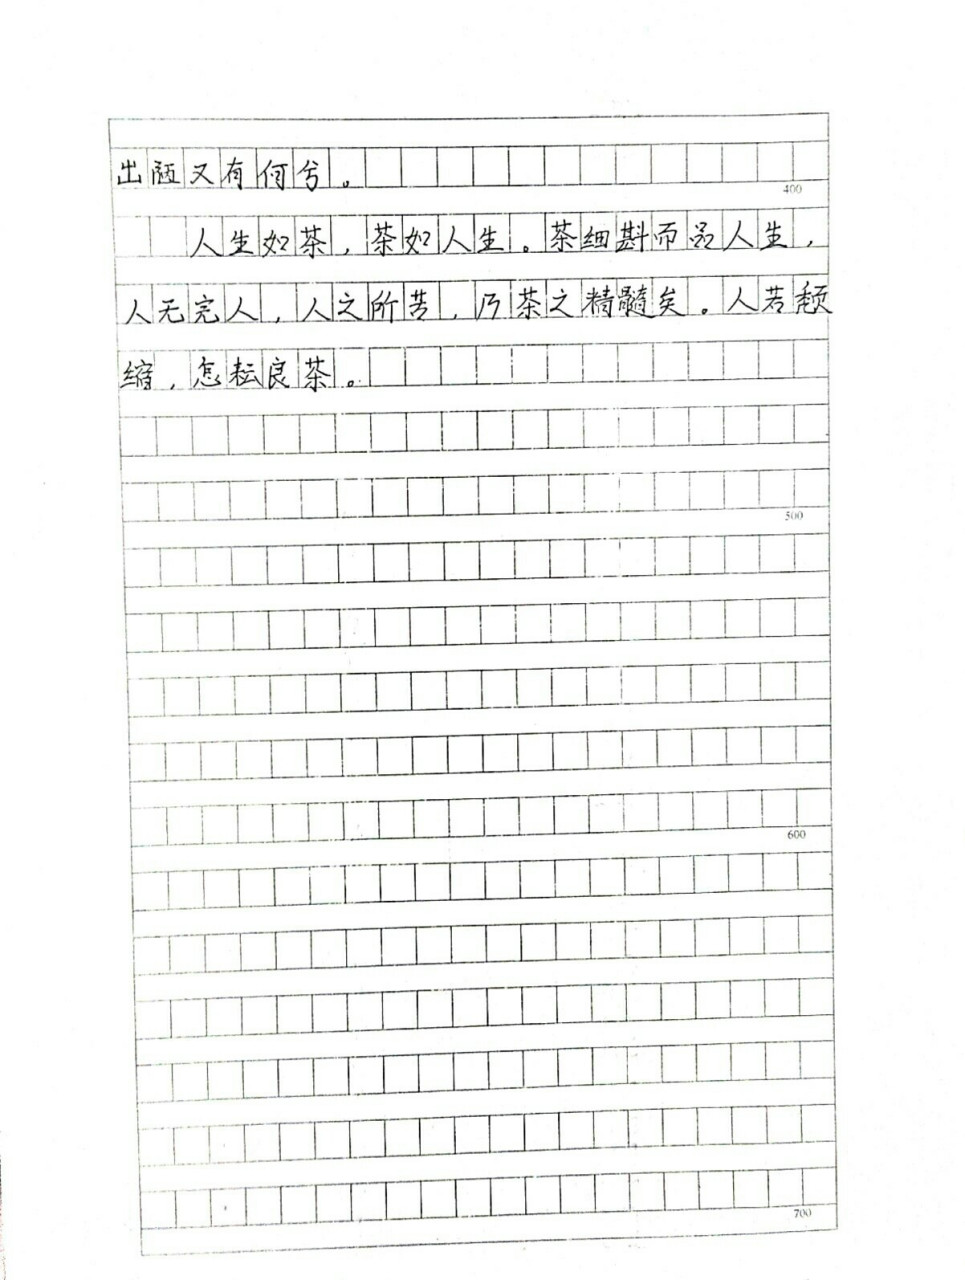 出陋又有何兮。
400
人生如茶，茶如人生。茶细斟而品人生，
人无完人，人之所苦，乃茶之精髓矣。人若颓
缩，怎耘良茶。
500
600
700